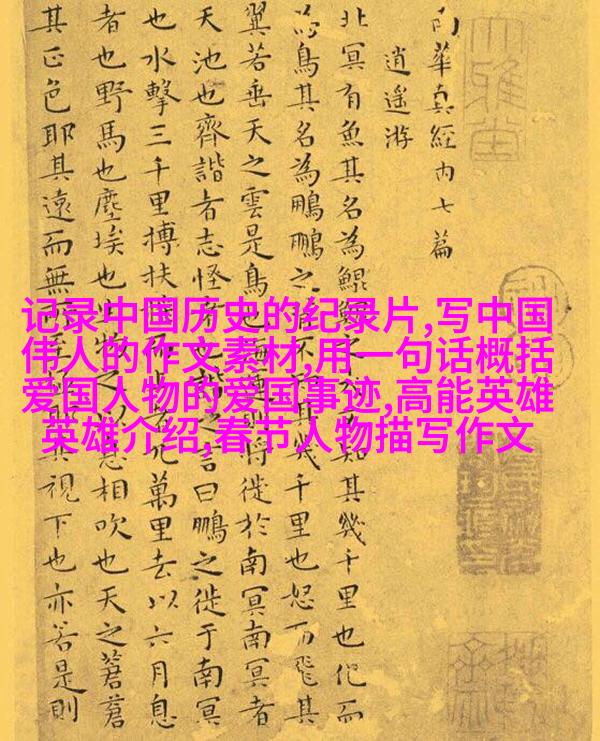 南華真經内七篇
逍遥游
北冥有魚其名為鯤其幾千里也化而
為鳥其名為鵬鵬之幾千里也怒而飛其
翼若垂天之雲是鳥也將徙於南冥南冥者
天池也齊諧者志怪者之言曰鵬之徙于南冥
也水擊三千里摶扶萬里去以六月息
者也野馬也塵埃也相吹也天之蒼蒼
其正色耶其遠而無視下也亦若是則
记录中国历史的纪录片,写中国
伟人的作文素材,用一句话概括
爱国人物的爱国事迹,高能英雄
英雄介绍,春节人物描写作文